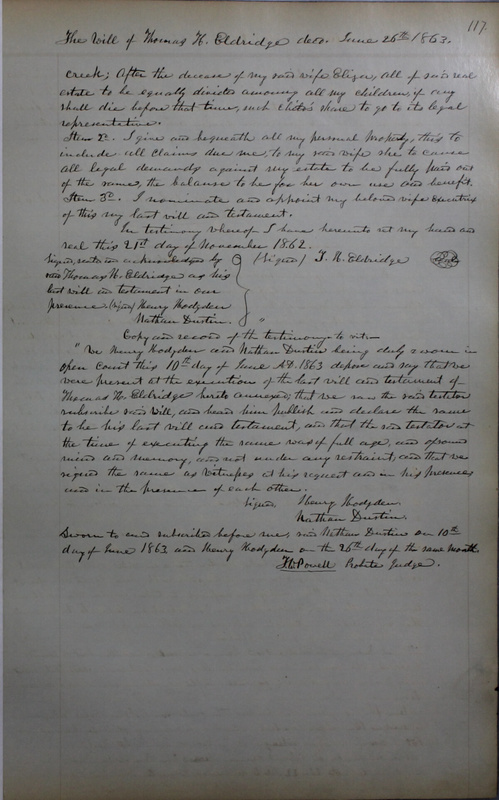 117
The Will of Thomas H. Eldridge decd. June 26th 1863.
creek; After the decease of my said wife Eliza, all of said real
estate to be equally divided among all my children, if any
shall die before that time, such child's share to go to its legal
representative.
Item 2d. I give and bequeath all my personal property, this to
include all claims due me, to my said wife she to cause
all legal demands against my estate to be fully paid out
of the same, the balance to be for her own use and benefit.
Item 3d. I nominate and appoint my beloved wife executrix
of this my last will and testament.
In testimony whereof I have hereunto set my hand and
seal this 21st day of November 1862.
Signed, and acknowledged by (Signed) T. H. Eldridge Seal
said Thomas H. Eldridge as his
last will and testament in our
presence. (Signed) Henry Hodgden
Nathan Dustin. "
Copy and record of the testimony to wit:—
"We Henry Hodgden and Nathan Dustin being duly sworn in
open Court this 10th day of June A.D. 1863 depose and say that we
were present at the execution of the last will and testament of
Thomas H. Eldridge hereto annexed; that we saw the said testator
subscribe said Will, and heard him publish and declare the same
to be his last will and testament, and that the said testator at
the time of executing the same was of full age, and of sound
mind and memory, and not under any restraint, and that we
signed the same as witnesses at his request and in his presence
and in the presence of each other.
Signed Henry Hodgden.
Nathan Dustin.
Sworn to and subscribed before me, said Nathan Dustin on 10th
day of June 1863 and Henry Hodgden on the 26th day of the same month
Powell Probate Judge.